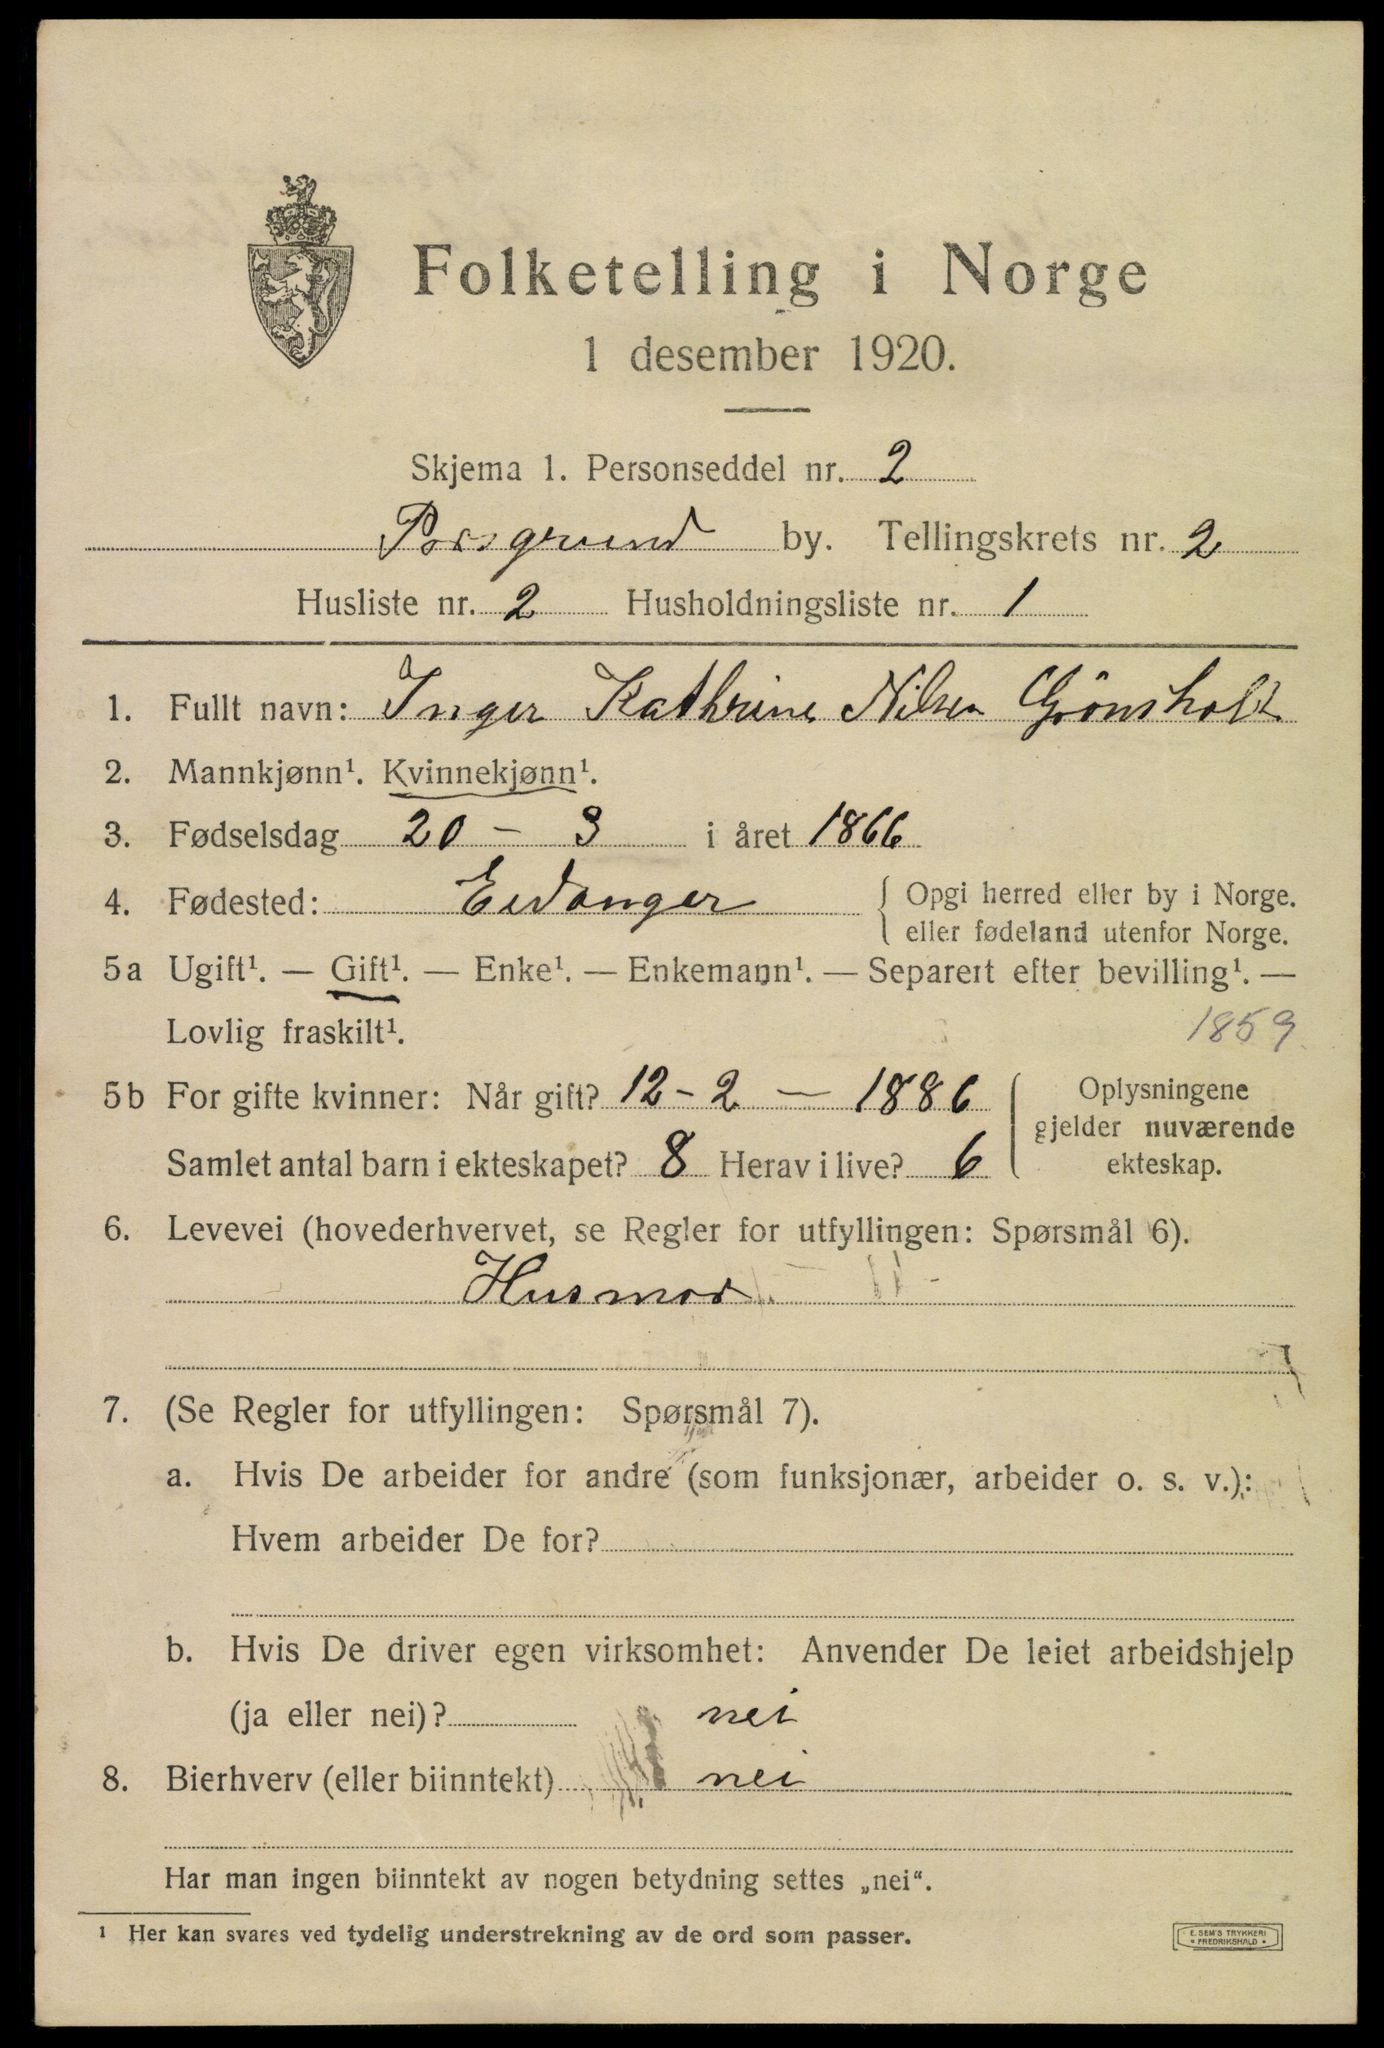 Folketelling i Norge
1 desember 1920.
Skjema 1. Personseddel nr. 2
Porsgrund by. Tellingskrets nr. 2
Husliste nr. 2 Husholdningsliste nr. 1
1. Fullt navn: Inger Kathrine Nilsen Grönsholt
2. Mannkjønn¹. Kvinnekjønn¹.
3. Fødselsdag 20 - 3 i året 1866
4. Fødested: Eidanger { Opgi herred eller by i Norge.
eller fødeland utenfor Norge.
5a Ugift¹. — Gift¹. — Enke¹. — Enkemann¹. — Separert efter bevilling¹. —
Lovlig fraskilt¹. 1859
5b For gifte kvinner: Når gift? 12 - 2 — 1886 Oplysningene
gjelder nuværende
Samlet antal barn i ekteskapet? 8 Herav i live? 6 ekteskap.
6. Levevei (hovederhvervet, se Regler for utfyllingen: Spørsmål 6).
Husmor
7. (Se Regler for utfyllingen: Spørsmål 7).
a. Hvis De arbeider for andre (som funksjonær, arbeider o. s. v.):
Hvem arbeider De for?
b. Hvis De driver egen virksomhet: Anvender De leiet arbeidshjelp
(ja eller nei)? nei
8. Bierhverv (eller biinntekt) nei
Har man ingen biinntekt av nogen betydning settes „nei“.
¹ Her kan svares ved tydelig understrekning av de ord som passer.
E. SEM'S TRYKKERI
• FREDRIKSHALD •